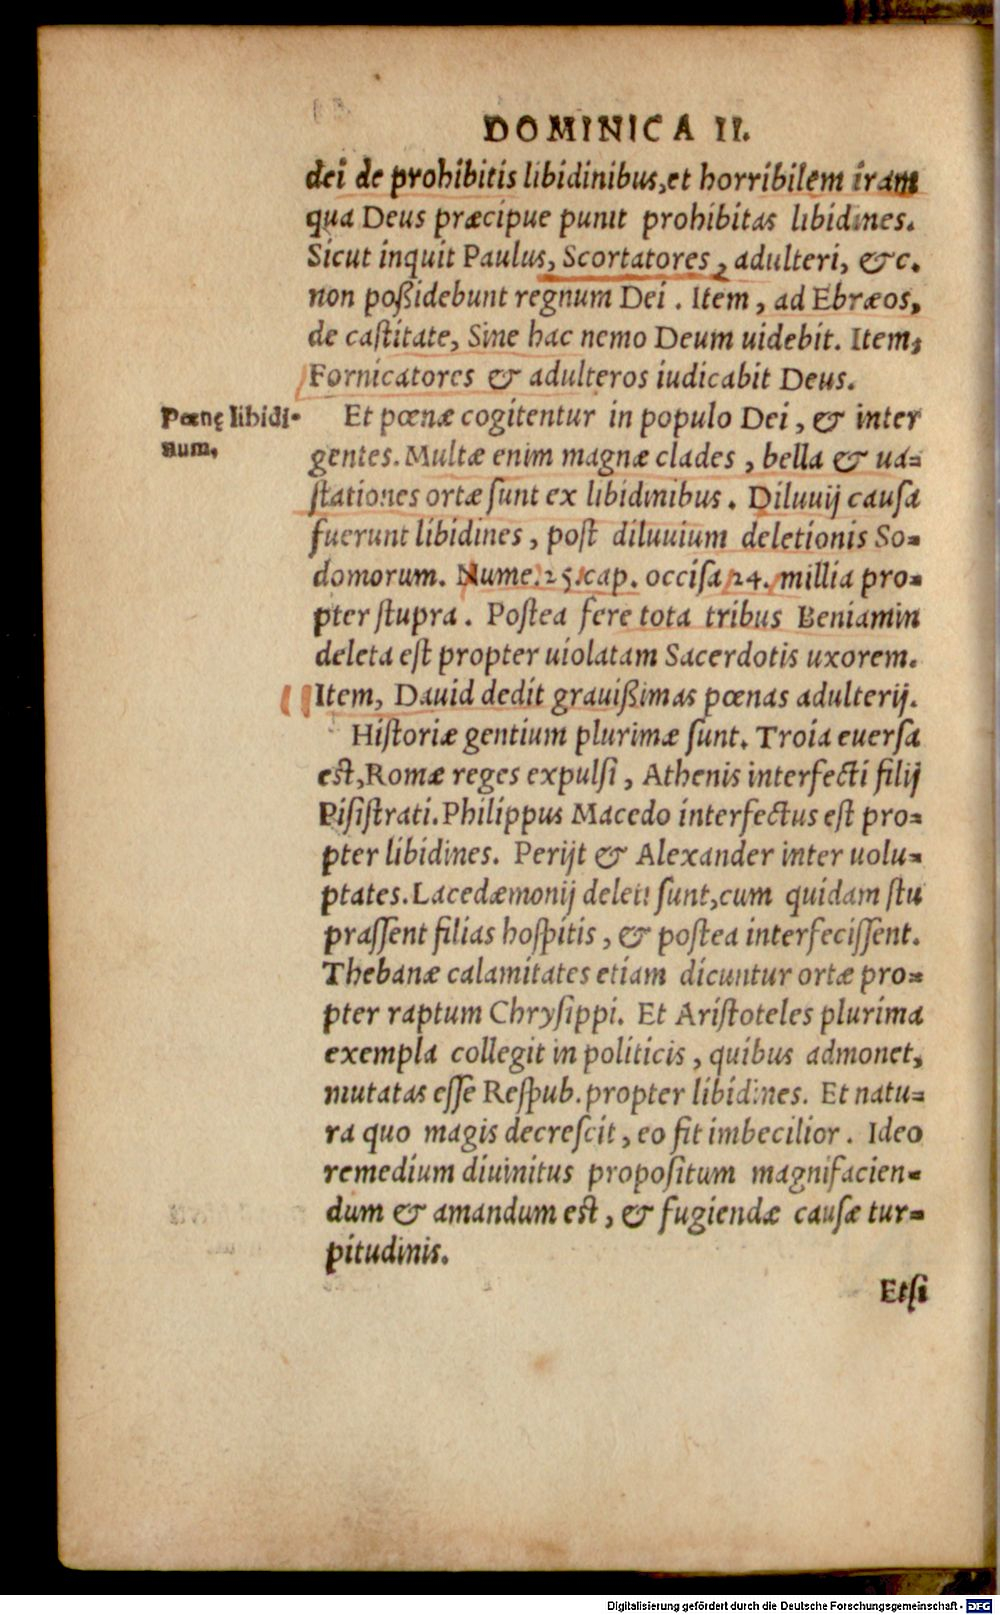 DOMINICA II.
dei de prohibitis libidinibus, et horribilem iram
qua Deus præcipue punit prohibitas libidines.
Sicut inquit Paulus, Scortatores, adulteri, &c.
non poßidebunt regnum Dei. Item, ad Ebræos,
de caſtitate, Sine hac nemo Deum uidebit. Item,
Fornicatores & adulteros iudicabit Deus.
Pœnę libidi-
num.
Et pœnæ cogitentur in populo Dei, & inter
gentes. Multæ enim magnæ clades, bella & ua-
ſtationes ortæ ſunt ex libidinibus. Diluuij cauſa
fuerunt libidines, poſt diluuium deletionis So-
domorum. Nume. 25. cap. occiſa 24. millia pro-
pter ſtupra. Poſtea fere tota tribus Beniamin
deleta eſt propter uiolatam Sacerdotis uxorem.
Item, Dauid dedit grauißimas pœnas adulterij.
Hiſtoriæ gentium plurimæ ſunt. Troia euerſa
eſt, Romæ reges expulſi, Athenis interfecti filij
Piſiſtrati. Philippus Macedo interfectus eſt pro-
pter libidines. Perijt & Alexander inter uolu-
ptates. Lacedæmonij deleti ſunt, cum quidam ſtu
praſſent filias hoſpitis, & poſtea interfeciſſent.
Thebanæ calamitates etiam dicuntur ortæ pro-
pter raptum Chryſippi. Et Ariſtoteles plurima
exempla collegit in politicis, quibus admonet,
mutatas eſſe Reſpub. propter libidines. Et natu-
ra quo magis decreſcit, eo fit imbecilior. Ideo
remedium diuinitus propoſitum magnifacien-
dum & amandum eſt, & fugiendæ cauſæ tur-
pitudinis.
Etſi
Digitalisierung gefördert durch die Deutsche Forschungsgemeinschaft - DFG